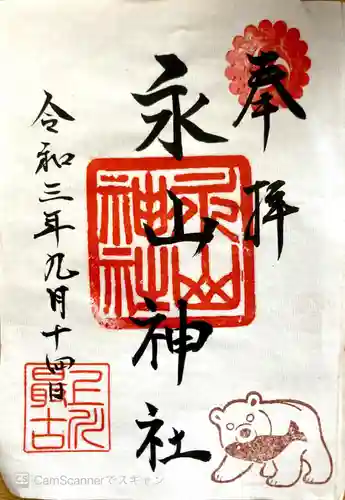 奉拝
永山神社
永山神社
令和三年九月十四日
CS CamScannerでスキャン